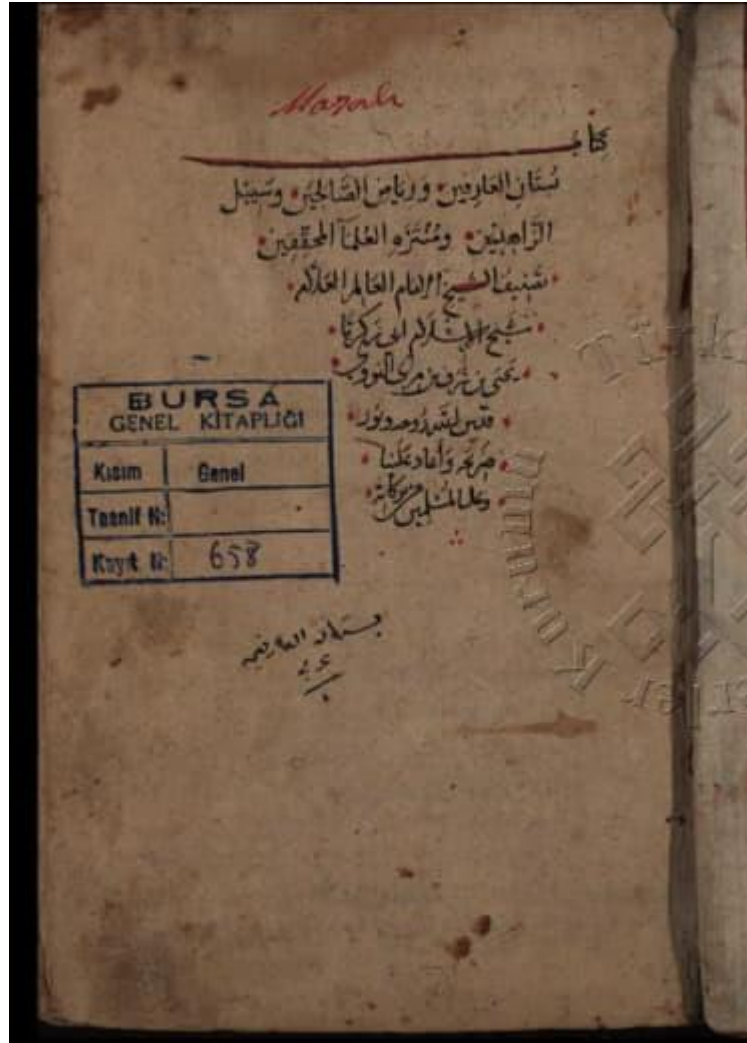 Mazalı
كتاب
بُستان العارفين ورياض الصَّالحين وسَبيل
الزَّاهدين ومُنتزَه العُلمآ المحقّقين
تَصنيف الشيخ الإمام العَالم العَلّامه
شيخ الإسلام ابى زكريَّا
يَحيى بن شرف بن مرى النووى
قدس الله روحه ونور
ضريحه وأعاد علينا
وعلى المسلمين من بركاته
BURSA
GENEL KİTAPLIĞI
Kısım Genel
Tasnif N:
Kayıt N: 658
بستان العارفين
عربى
Türk